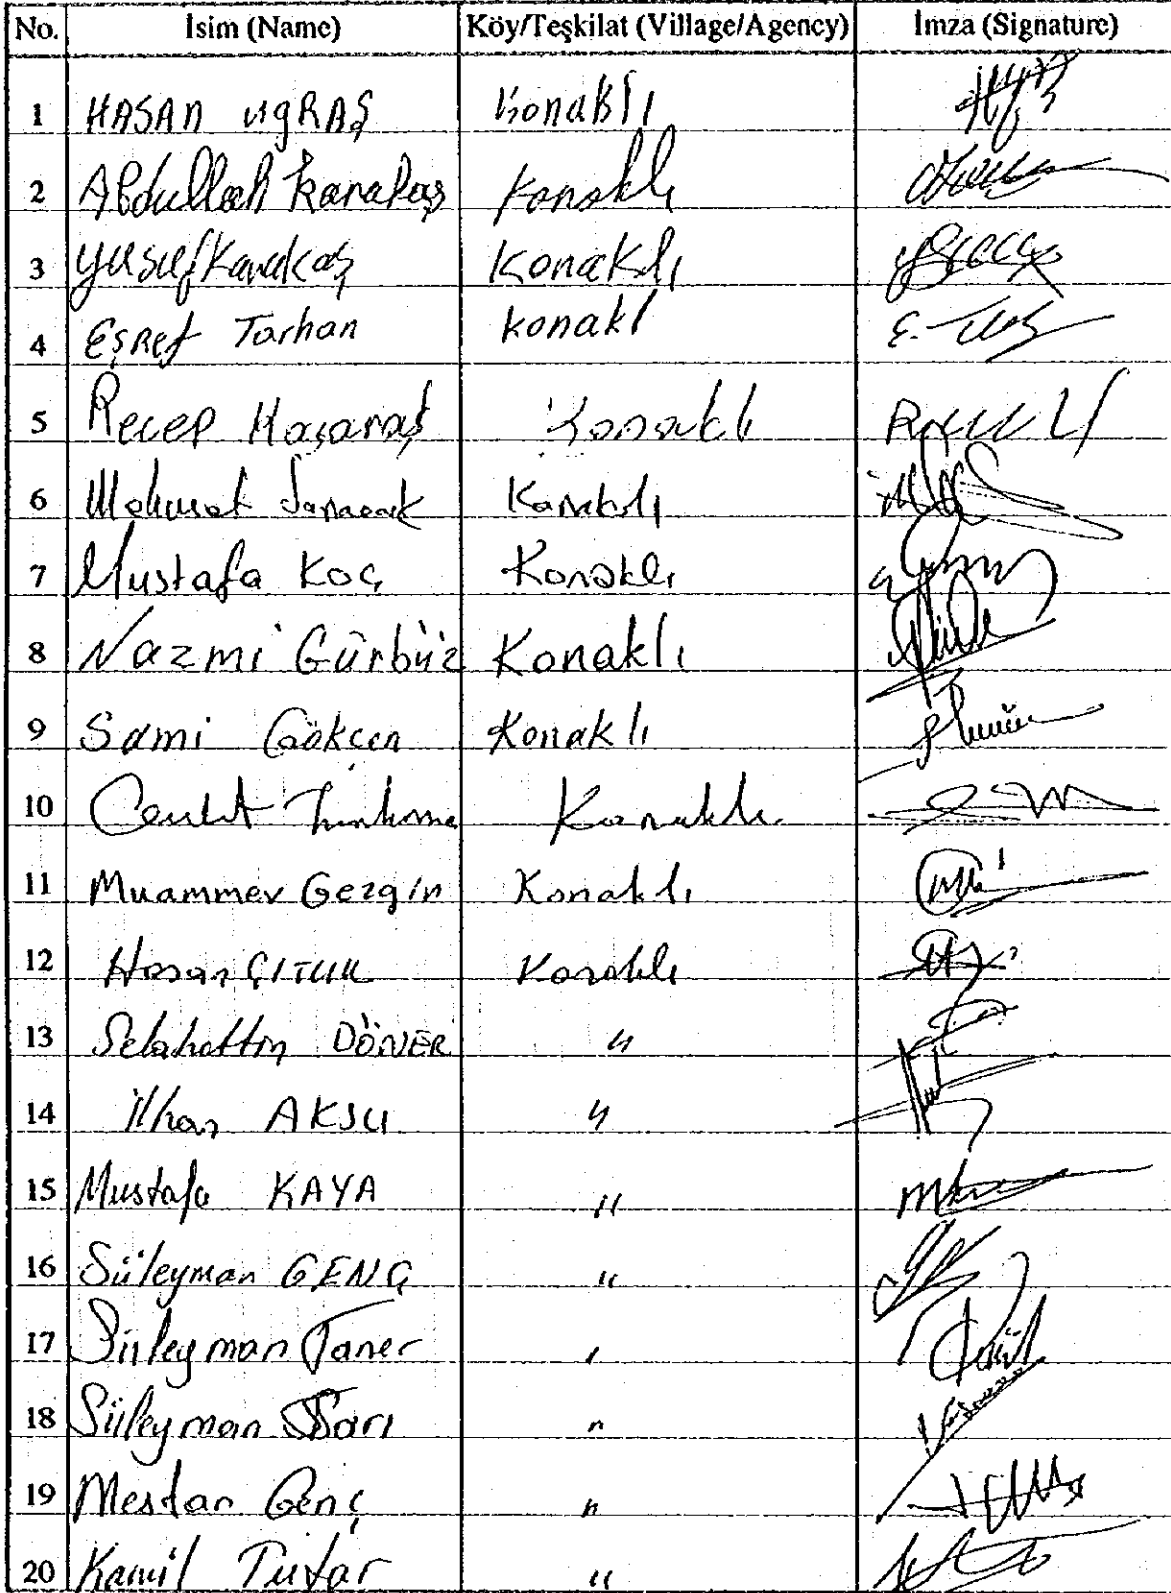 No. İsim (Name) Köy/Teşkilat (Village/Agency) İmza (Signature)
1 HASAN UgRAŞ Konaklı
2 Abdullah Karakaş Konaklı
3 Yusuf Karakaş Konaklı
4 EŞRef Tarhan Konaklı
5 Recep Konaklı
6 Konaklı
7 Mustafa Koç Konaklı
8 Nazmi Gürbüz Konaklı
9 Sami Gökçen Konaklı
10 Konaklı
11 Muammer Gezgin Konaklı
12 Hasan Konaklı
13 Selahattin DÖNER "
14 İlhan AKSU "
15 Mustafa KAYA "
16 Süleyman GENÇ "
17 Süleyman Taner "
18 Süleyman Sarı "
19 Mestan Genç "
20 Kamil Tutar "